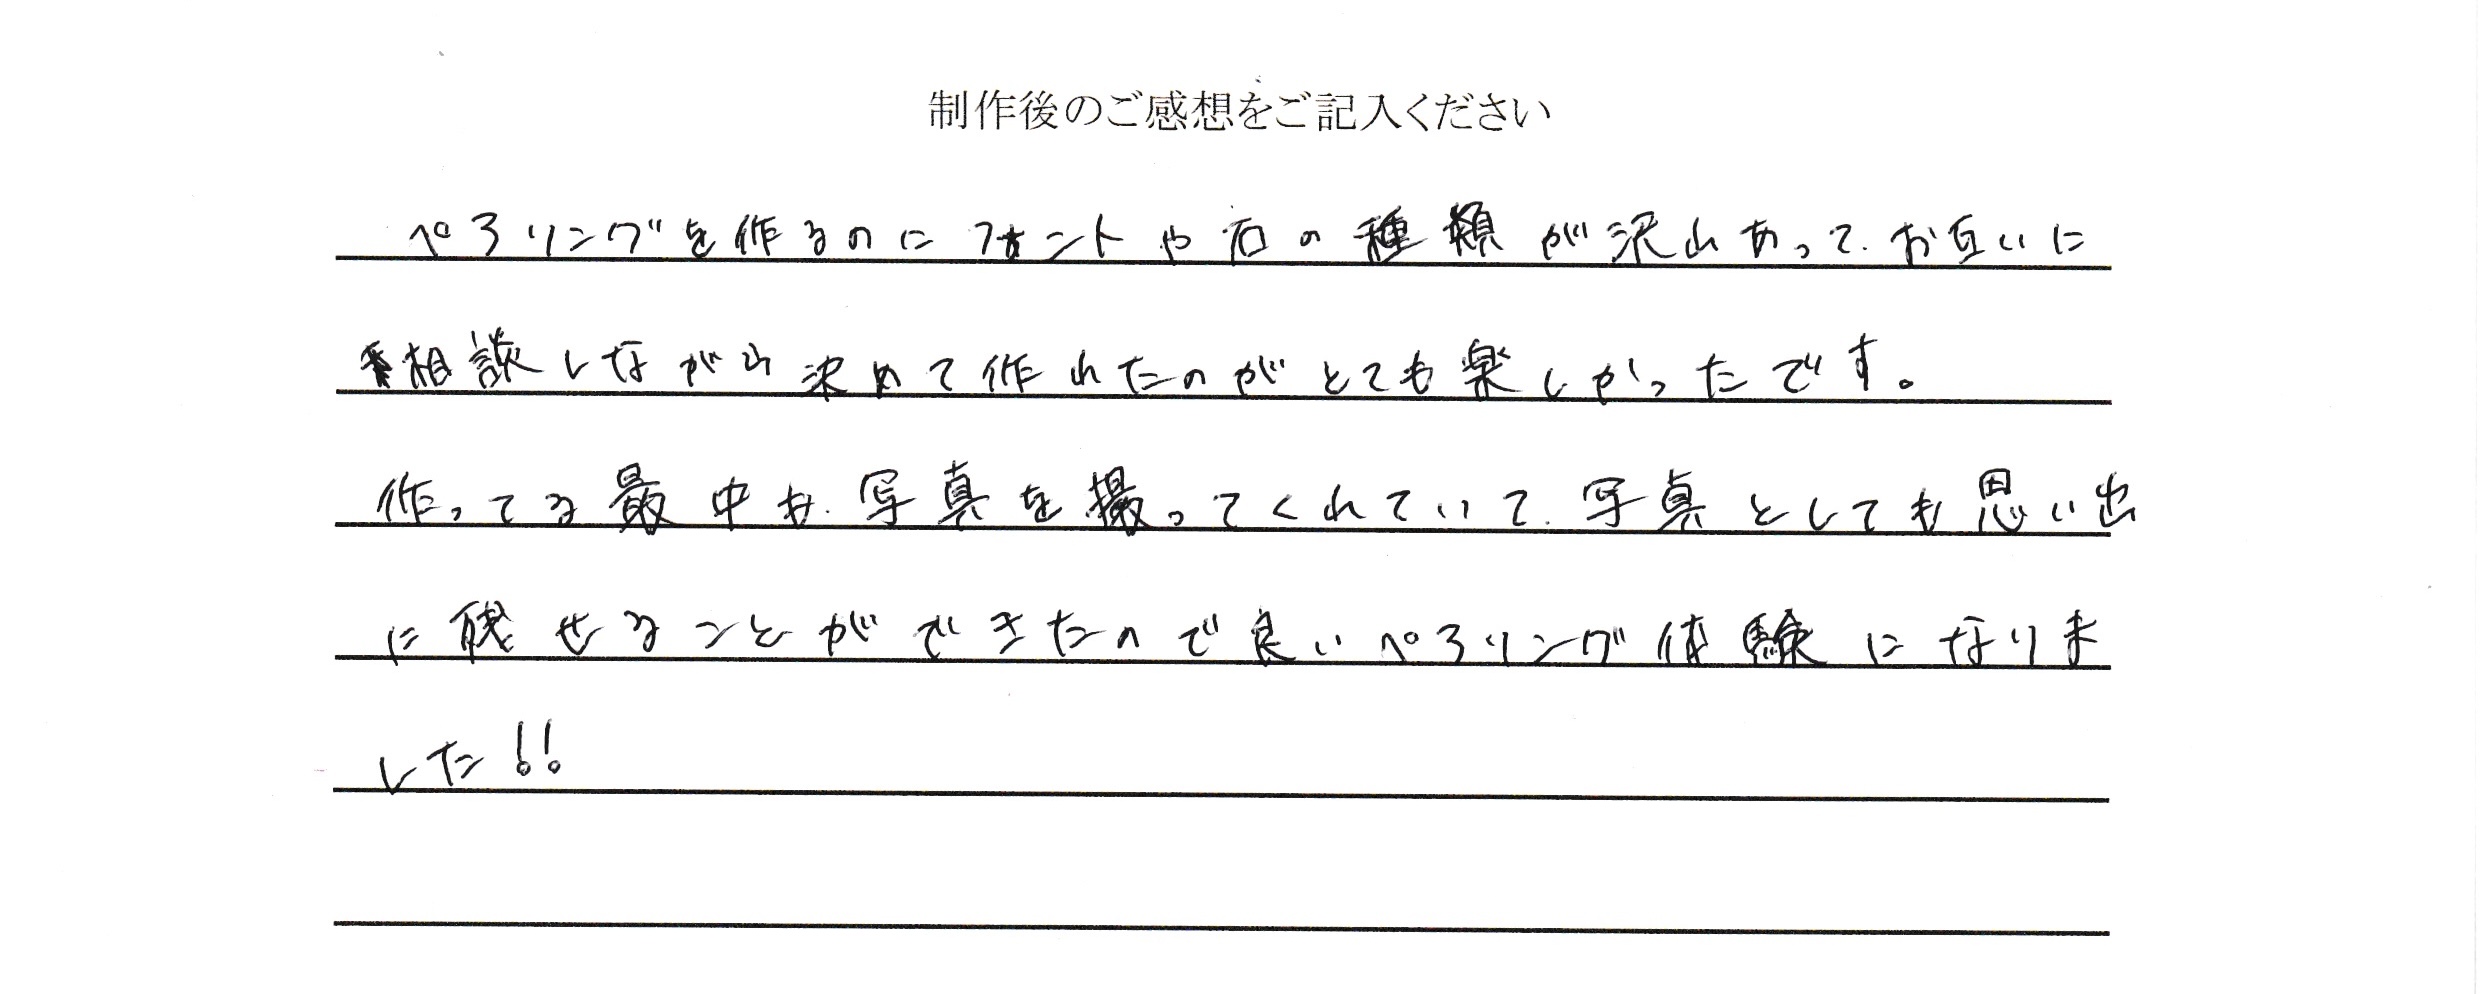 制作後のご感想をご記入ください
ペアリングを作るのにフォントや石の種類が沢山あって、お互いに
相談しながら決めて作れたのがとても楽しかったです。
作ってる最中も、写真を撮ってくれていて、写真としても思い出
に残せることができたので良いペアリング体験になりま
した!!